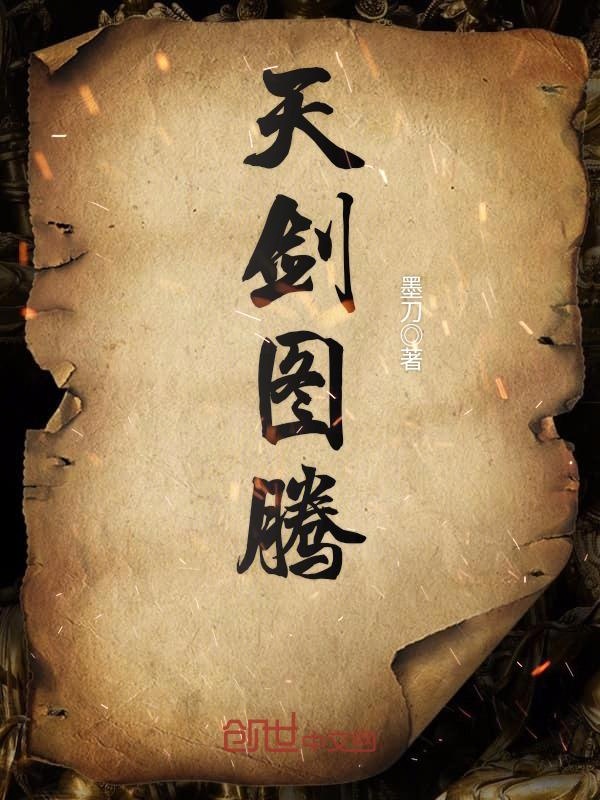 天剑图腾
墨刀◎著
创世中文网